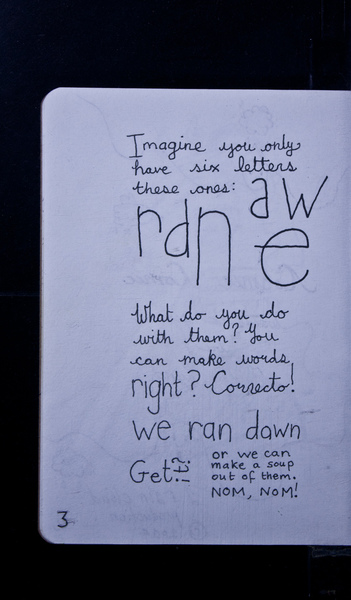 Imagine you only
have six letters
these ones:
r d n a w e
What do you do
with them? You
can make words,
right? Correcto!
we ran dawn
Get it?!
or we can
make a soup
out of them.
NOM, NOM!
3